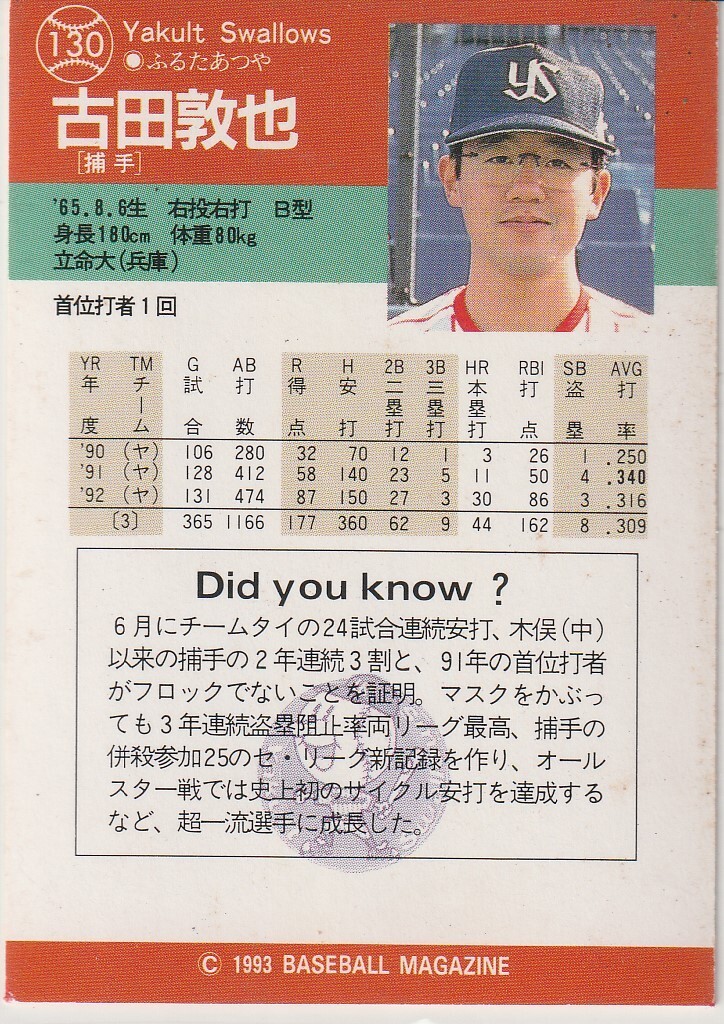 130 Yakult Swallows
●ふるたあつや
古田敦也
[捕手]
YS
'65.8.6生 右投右打 B型
身長180cm 体重80kg
立命大(兵庫)
首位打者1回
YR TM G AB R H 2B 3B HR RBI SB AVG
年度 チーム 試合 打数 得点 安打 二塁打 三塁打 本塁打 打点 盗塁 打率
'90 (ヤ) 106 280 32 70 12 1 3 26 1 .250
'91 (ヤ) 128 412 58 140 23 5 11 50 4 .340
'92 (ヤ) 131 474 87 150 27 3 30 86 3 .316
〔3〕 365 1166 177 360 62 9 44 162 8 .309
Did you know ?
6月にチームタイの24試合連続安打、木俣(中)
以来の捕手の2年連続3割と、91年の首位打者
がフロックでないことを証明。マスクをかぶっ
ても3年連続盗塁阻止率両リーグ最高、捕手の
併殺参加25のセ・リーグ新記録を作り、オール
スター戦では史上初のサイクル安打を達成する
など、超一流選手に成長した。
© 1993 BASEBALL MAGAZINE